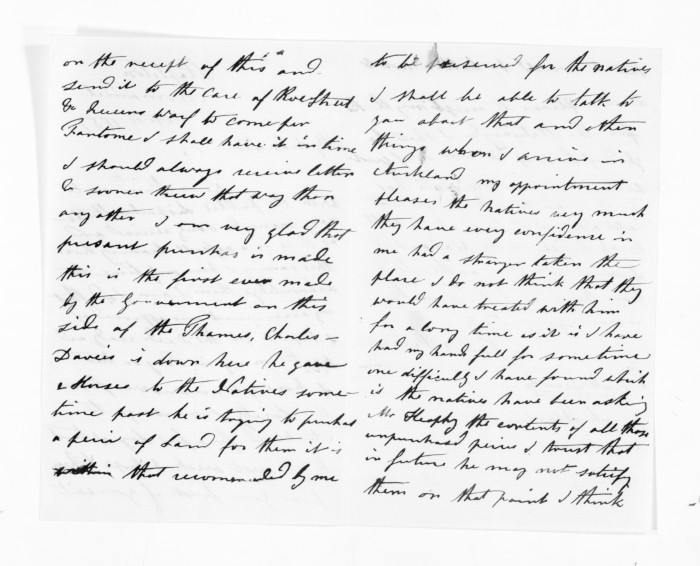 on the receipt of this and
send it to the care of
& Davis to come per
Fantome I shall have it in time
I should always receive letters
& sooner that way than
any other I am very glad that
presant purchas is made
this is the first ever made
by the Government on this
side of the Thames, Charles
Davis is down here he gave
a Horse to the Natives some
time past he is trying to purchas
a peice of Land for them it is
within that recommended by me
to be preserved for the natives
I shall be able to talk to
you about that and other
things when I arrive in
Auckland my appointment
pleases the natives very much
they have every confidence in
me had a stranger taken the
place I do not think that they
would have treated with him
for a long time as it is I have
had my hands full for sometime
one difficulty I have found which
is the natives have been asking
Mr Heaphy the contents of all those
unpurchased peices I trust that
in future he may not satisfy
them on that point I think